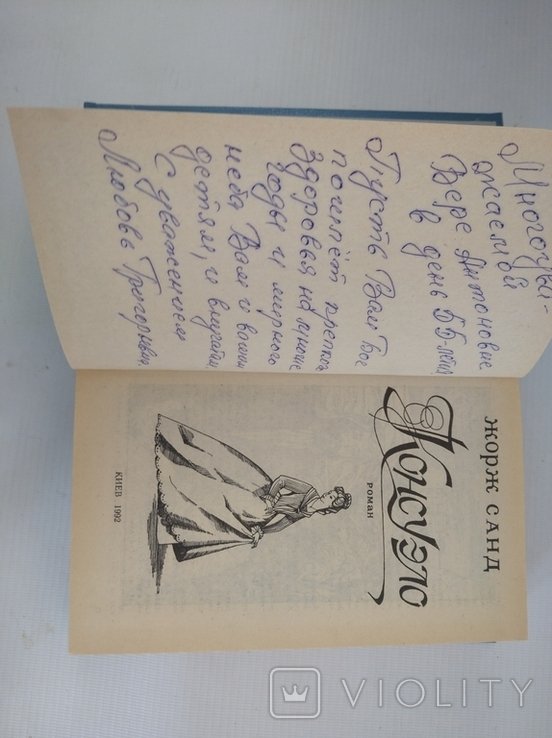 Многоува-
жаемой
Вере Антоновне
в день 55-летия
Пусть Вам Бог
пошлёт крепкого
здоровья на многие
годы и мирного
неба Вам и вашим
детям, и внучатам
С уважением
Любовь Григорьевна.
ЖОРЖ САНД
Консуэло
роман
КИЕВ 1992
VIOLITY